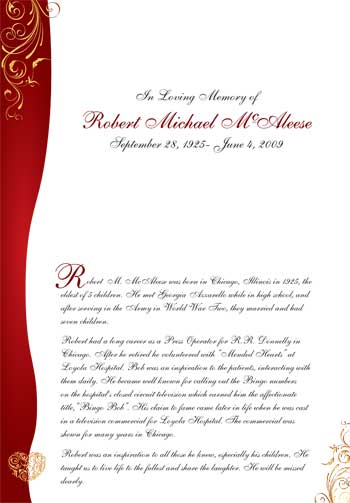 In Loving Memory of
Robert Michael McAleese
September 28, 1925- June 4, 2009
Robert M. McAleese was born in Chicago, Illinois in 1925, the
eldest of 5 children. He met Georgia Azzarello while in high school, and
after serving in the Army in World War Two, they married and had
seven children.
Robert had a long career as a Press Operator for R.R. Donnelly in
Chicago. After he retired he volunteered with "Mended Hearts" at
Loyola Hospital. Bob was an inspiration to the patients, interacting with
them daily. He became well known for calling out the Bingo numbers
on the hospital's closed circuit television which earned him the affectionate
title, "Bingo Bob". His claim to fame came later in life when he was cast
in a television commercial for Loyola Hospital. The commercial was
shown for many years in Chicago.
Robert was an inspiration to all those he knew, especially his children. He
taught us to live life to the fullest and share the laughter. He will be missed
dearly.